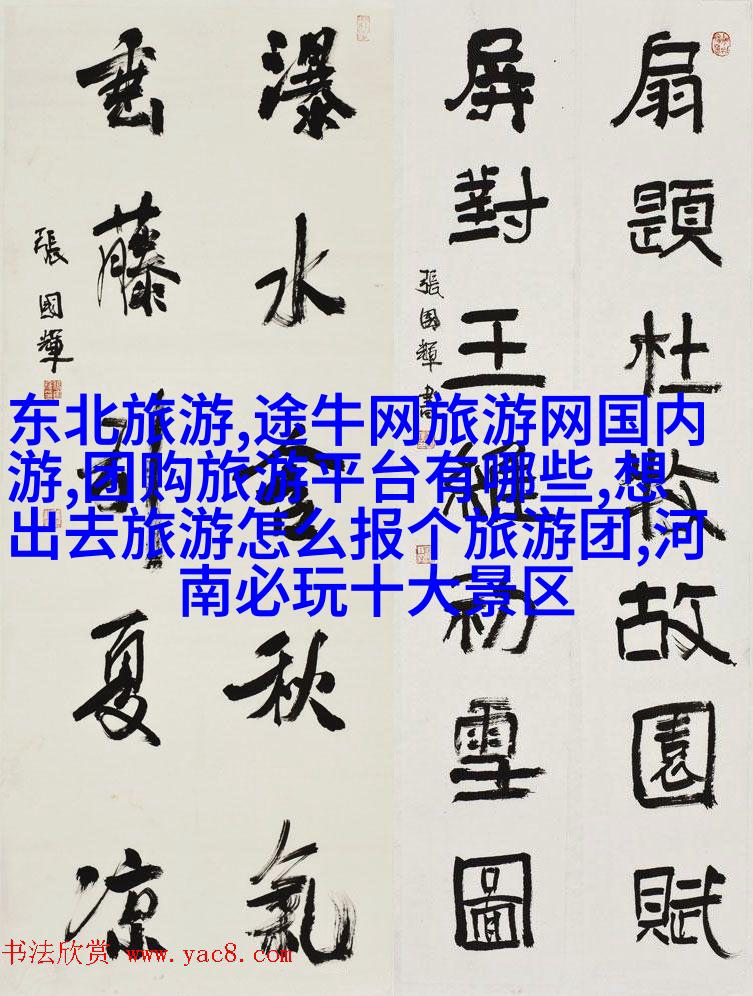 扇題杜牧故園賦
屏對王維初雪圖
張國輝書
瀑水含秋氣
垂藤引夏凉
張國輝
东北旅游,途牛网旅游网国内
游,团购旅游平台有哪些,想
出去旅游怎么报个旅游团,河
南必玩十大景区
书法欣赏 www.yac8.com